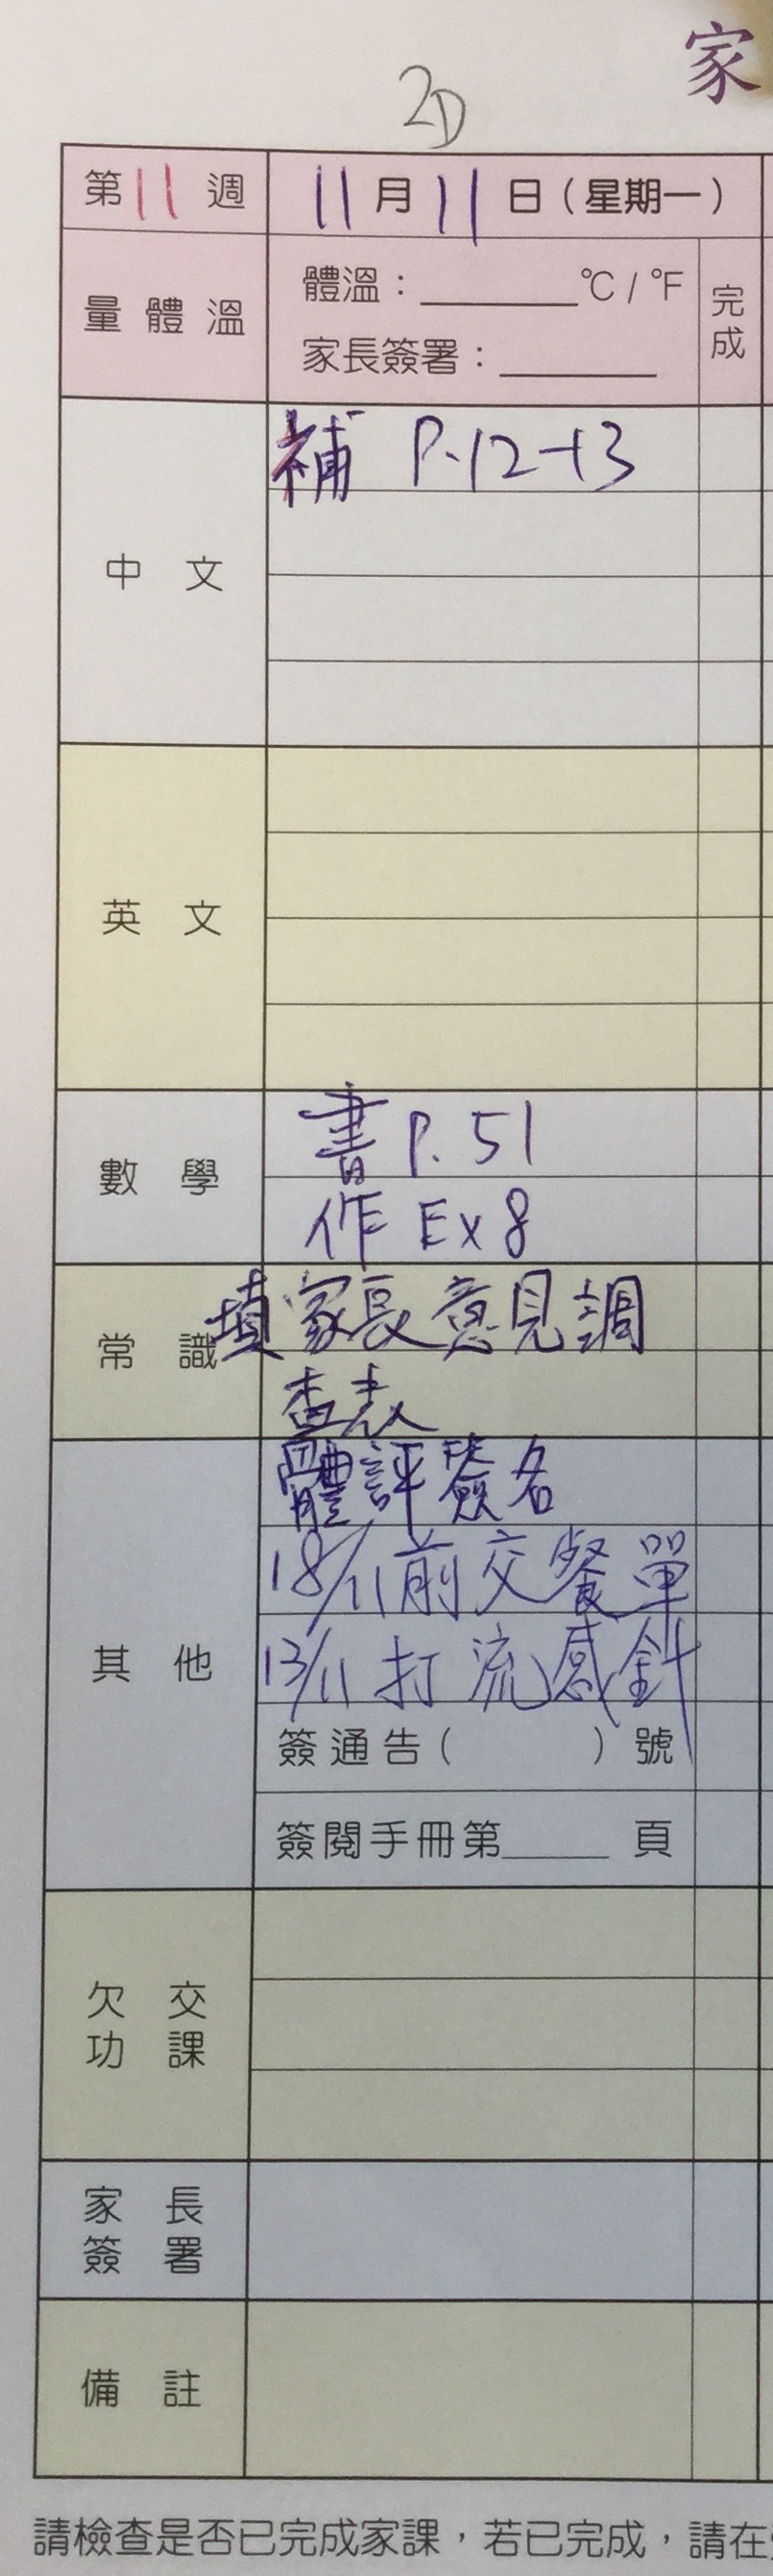 家
2D
第11週 11月11日(星期一)
量體溫 體溫:______℃/℉ 完成
家長簽署:______
中文 補 P.12-13
英文
數學 書 P.51
作 Ex 8
常識 填家長意見調
查表
其他 體評簽名
18/11前交餐單
13/11 打流感針
簽通告( )號
簽閱手冊第____頁
欠交功課
家長簽署
備註
請檢查是否已完成家課,若已完成,請在